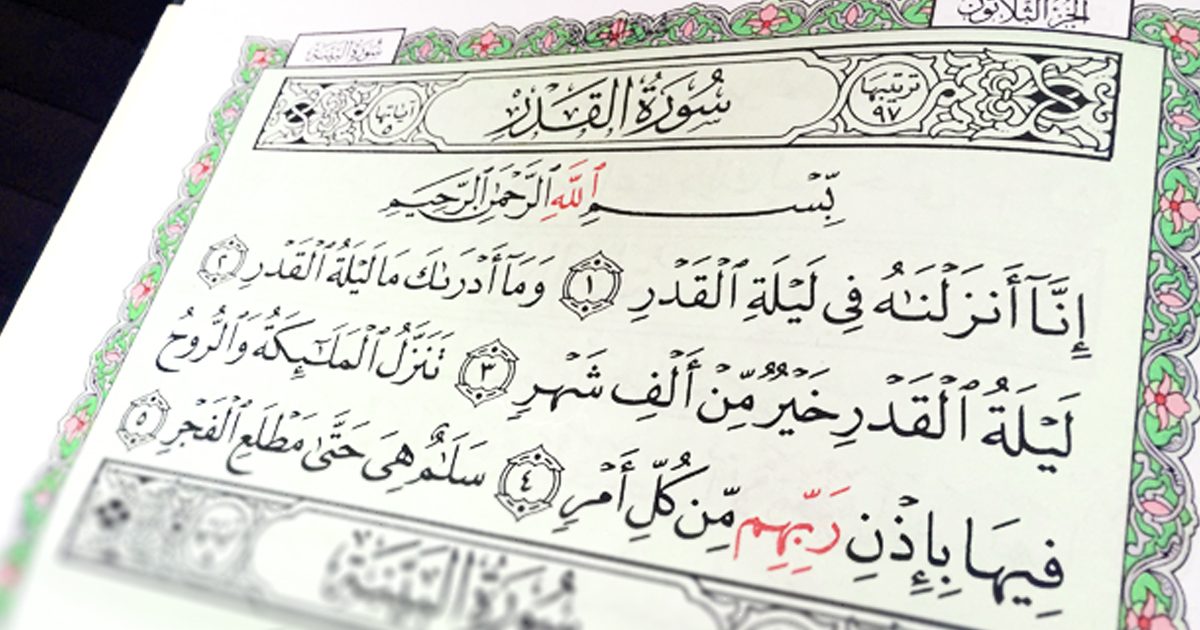 الجزء الثلاثون
سورة البينة
ترتيبها ٩٧
سُورَةُ الْقَدْرِ
آياتها ٥
بِّسْمِ ٱللَّهِ ٱلرَّحْمَٰنِ ٱلرَّحِيمِ
إِنَّآ أَنزَلْنَٰهُ فِى لَيْلَةِ ٱلْقَدْرِ ١ وَمَآ أَدْرَىٰكَ مَا لَيْلَةُ ٱلْقَدْرِ ٢
لَيْلَةُ ٱلْقَدْرِ خَيْرٌ مِّنْ أَلْفِ شَهْرٍ ٣ تَنَزَّلُ ٱلْمَلَٰٓئِكَةُ وَٱلرُّوحُ
فِيهَا بِإِذْنِ رَبِّهِم مِّن كُلِّ أَمْرٍ ٤ سَلَٰمٌ هِىَ حَتَّىٰ مَطْلَعِ ٱلْفَجْرِ ٥
سُورَةُ الْبَيِّنَةِ